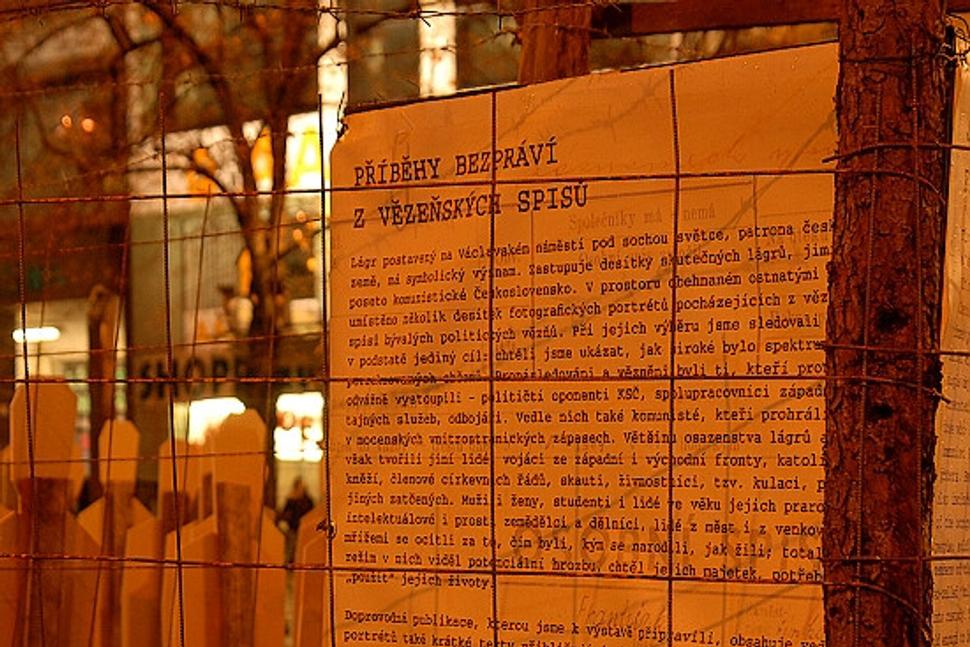 PŘÍBĚHY BEZPRÁVÍ
Z VĚZEŇSKÝCH SPISŮ
Společníky má nemá
Lágr postavený na Václavském náměstí pod sochou světce, patrona česk
země, má symbolický význam. Zastupuje desítky skutečných lágrů, jimi
poseto komunistické Československo. V prostoru obehnaném ostnatými
umístěno několik desítek fotografických portrétů pocházejících z věz
spisů bývalých politických vězňů. Při jejich výběru jsme sledovali
v podstatě jediný cíl: chtěli jsme ukázat, jak široké bylo spektrum
perzekvovaných občanů. Pronásledováni a vězněni byli ti, kteří pro
odvážně vystoupili - političtí oponenti KSČ, spolupracovníci západ
tajných služeb, odbojáři. Vedle nich také komunisté, kteří prohráli
v mocenských vnitrostranických zápasech. Většinu osazenstva lágrů a
však tvořili jiní lidé: vojáci ze západní i východní fronty, katoli
kněží, členové církevních řádů, skauti, živnostníci, tzv. kulaci, p
jiných zatčených. Muži i ženy, studenti i lidé ve věku jejich praro
intelektuálové i prostí zemědělci a dělníci, lidé z měst i z venkov
mřížemi se ocitli za to, čím byli, kým se narodili, jak žili; total
režim v nich viděl potenciální hrozbu, chtěl jejich majetek, potřeb
„použít" jejich životy.
Doprovodná publikace, kterou jsme k výstavě připravili, obsahuje ved
portrétů také krátké texty
SHOPE